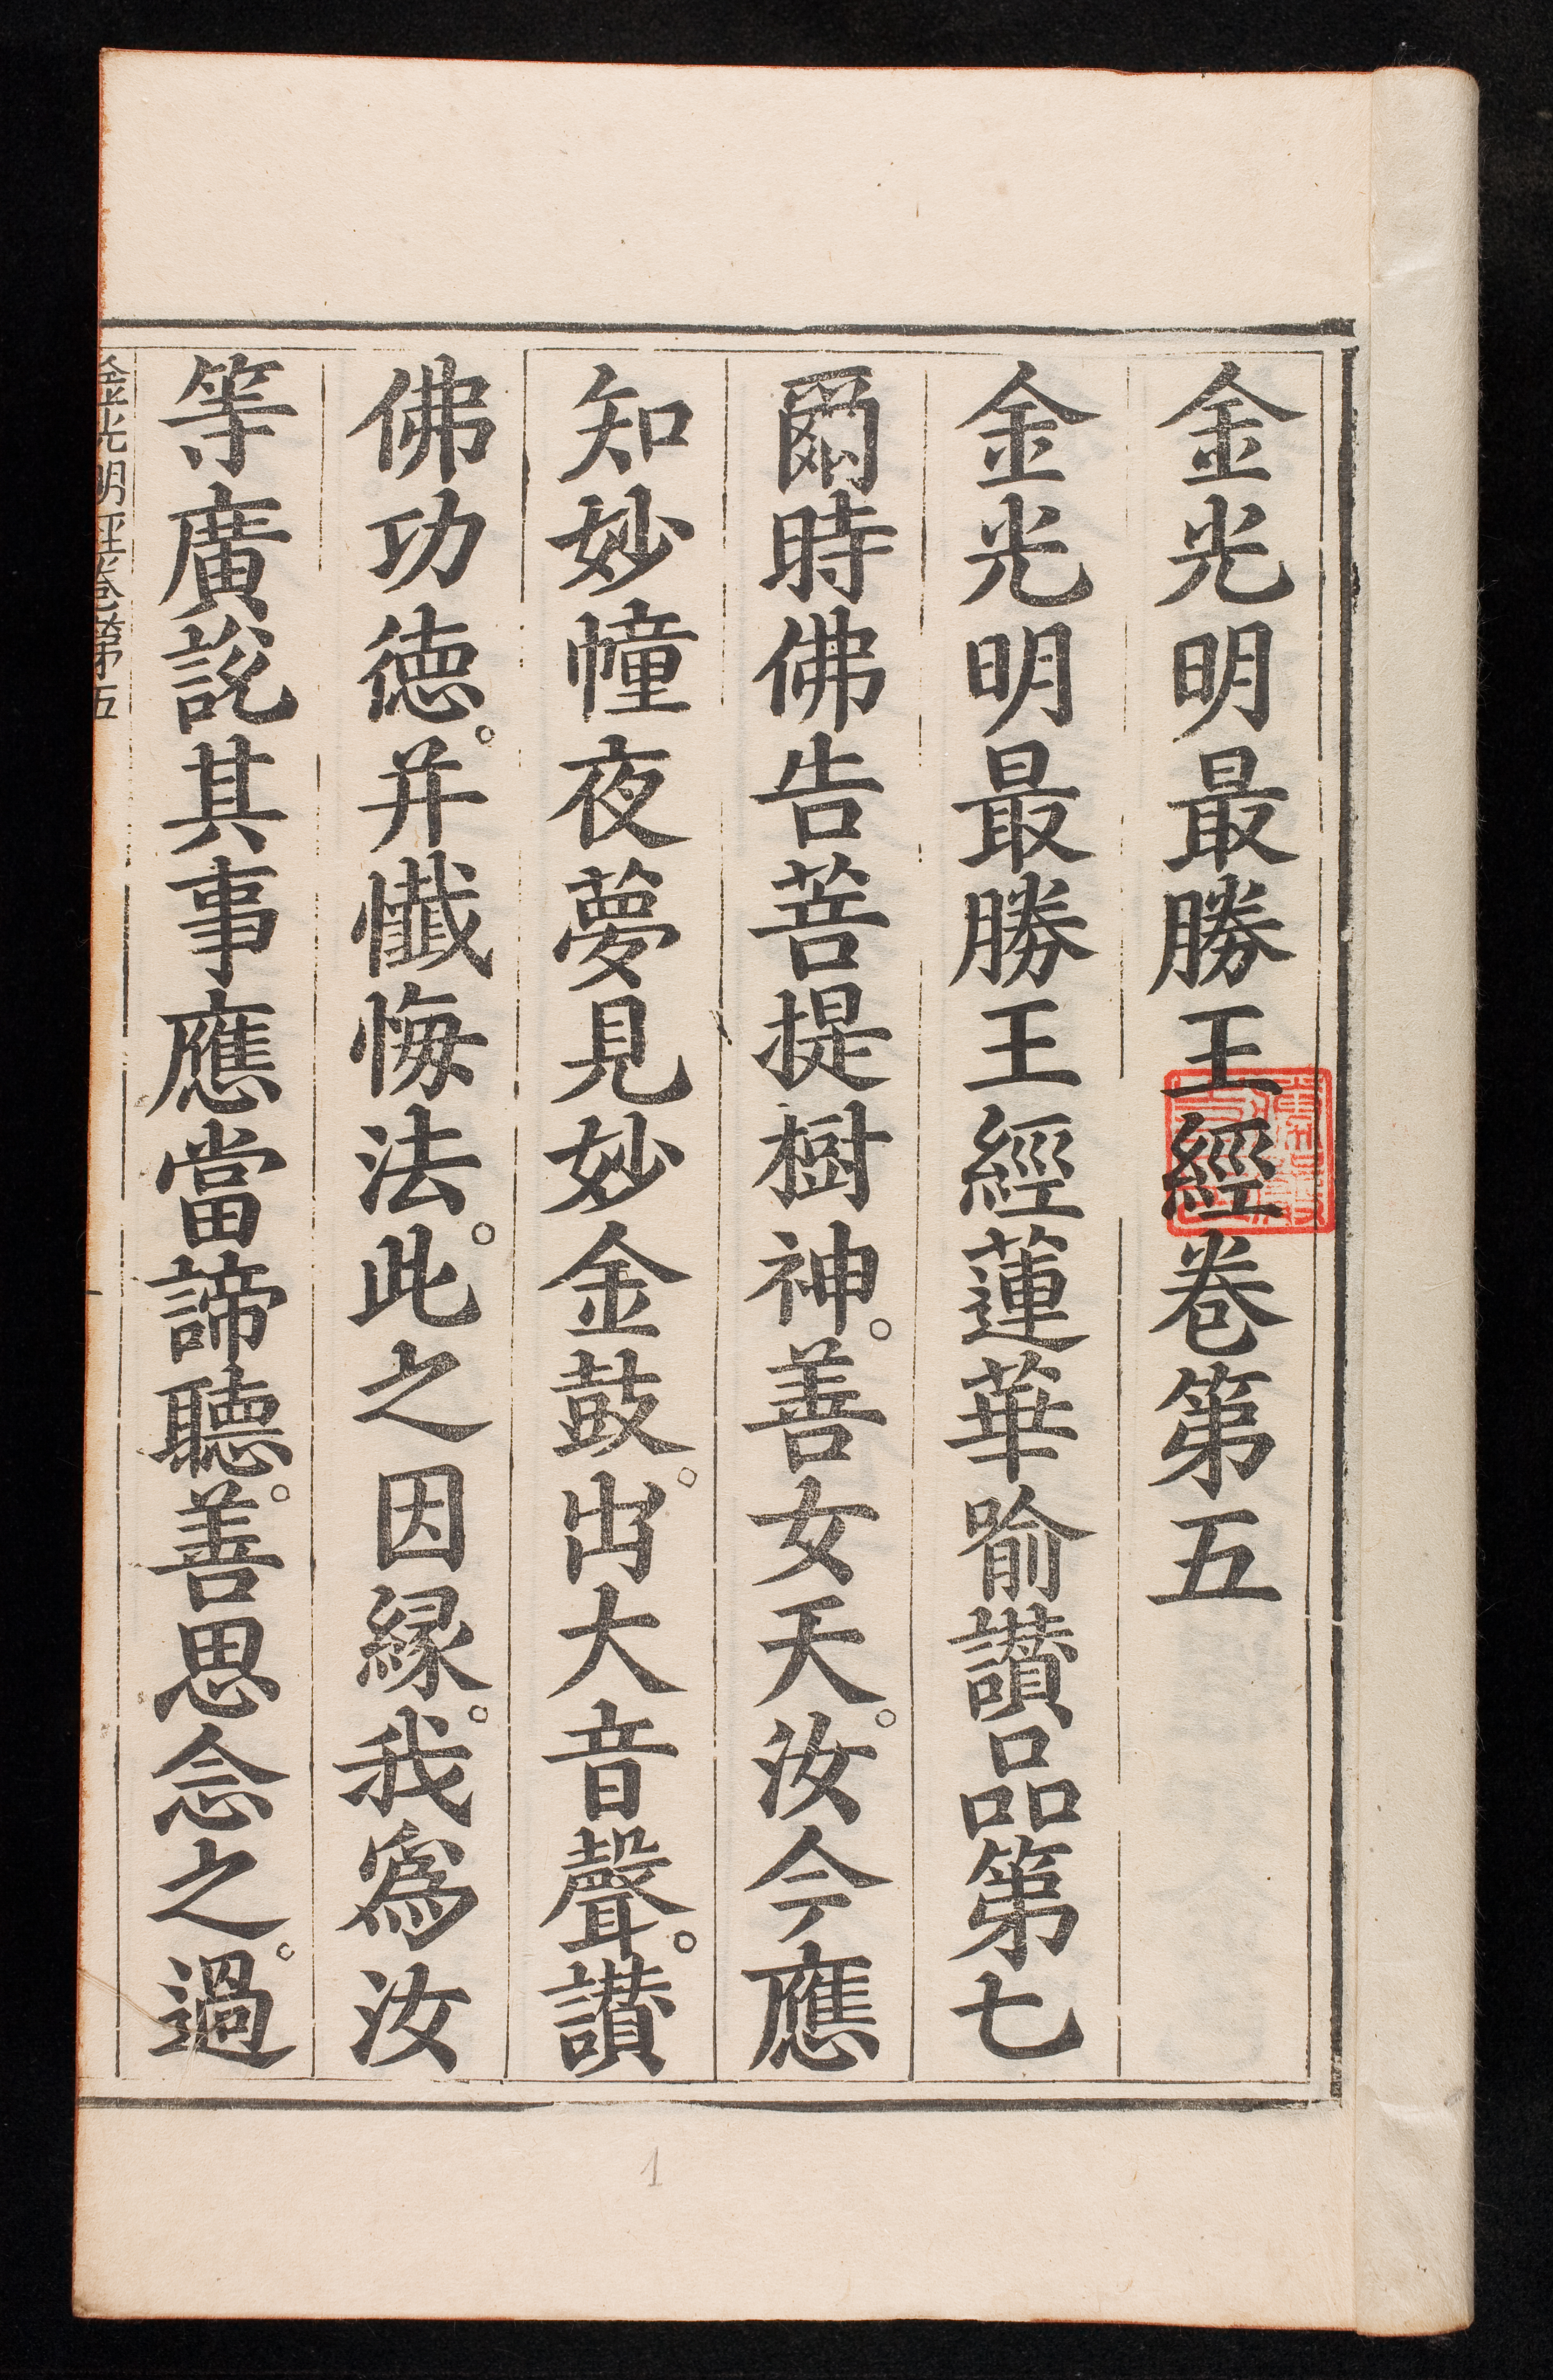 金光明最勝王經卷第五
金光明最勝王經蓮華喻讚品第七
爾時佛告菩提樹神。善女天。汝今應
知妙幢夜夢見妙金鼓。出大音聲。讚
佛功德。并懺悔法。此之因緣。我為汝
等廣說其事應當諦聽。善思念之。過
金光明經卷第五
1